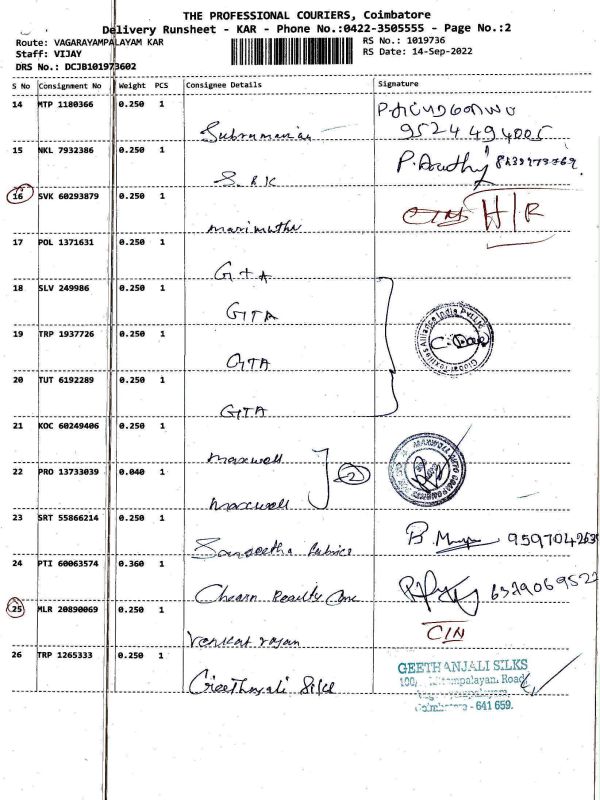 THE PROFESSIONAL COURIERS, Coimbatore
Delivery Runsheet - KAR - Phone No.:0422-3505555 - Page No.:2
Route: VAGARAYAMPALAYAM KAR
RS No.: 1019736
Staff: VIJAY
RS Date: 14-Sep-2022
DRS No.: DCJB101973602
S No Consignment No Weight PCS Consignee Details Signature
14 MTP 1180366 0.250 1
Subramanian
9524494005
15 NKL 7932386 0.250 1
S.RK
P.
16 SVK 60293879 0.250 1
Marimuthu
H/R
17 POL 1371631 0.250 1
GTA
18 SLV 249986 0.250 1
GTA
19 TRP 1937726 0.250 1
GTA
Global Textiles Alliance India Pvt Ltd
20 TUT 6192289 0.250 1
GTA
21 KOC 60249406 0.250 1
Maxwell
22 PRO 13733039 0.040 1
Maxwell
2
23 SRT 55866214 0.250 1
Sangeetha Fabrics
B.
24 PTI 60063574 0.360 1
25 MLR 20890069 0.250 1
Venkat rajan
CIN
26 TRP 1265333 0.250 1
Geethanjali Silks
GEETHANJALI SILKS
Road
Coimbatore - 641 659.